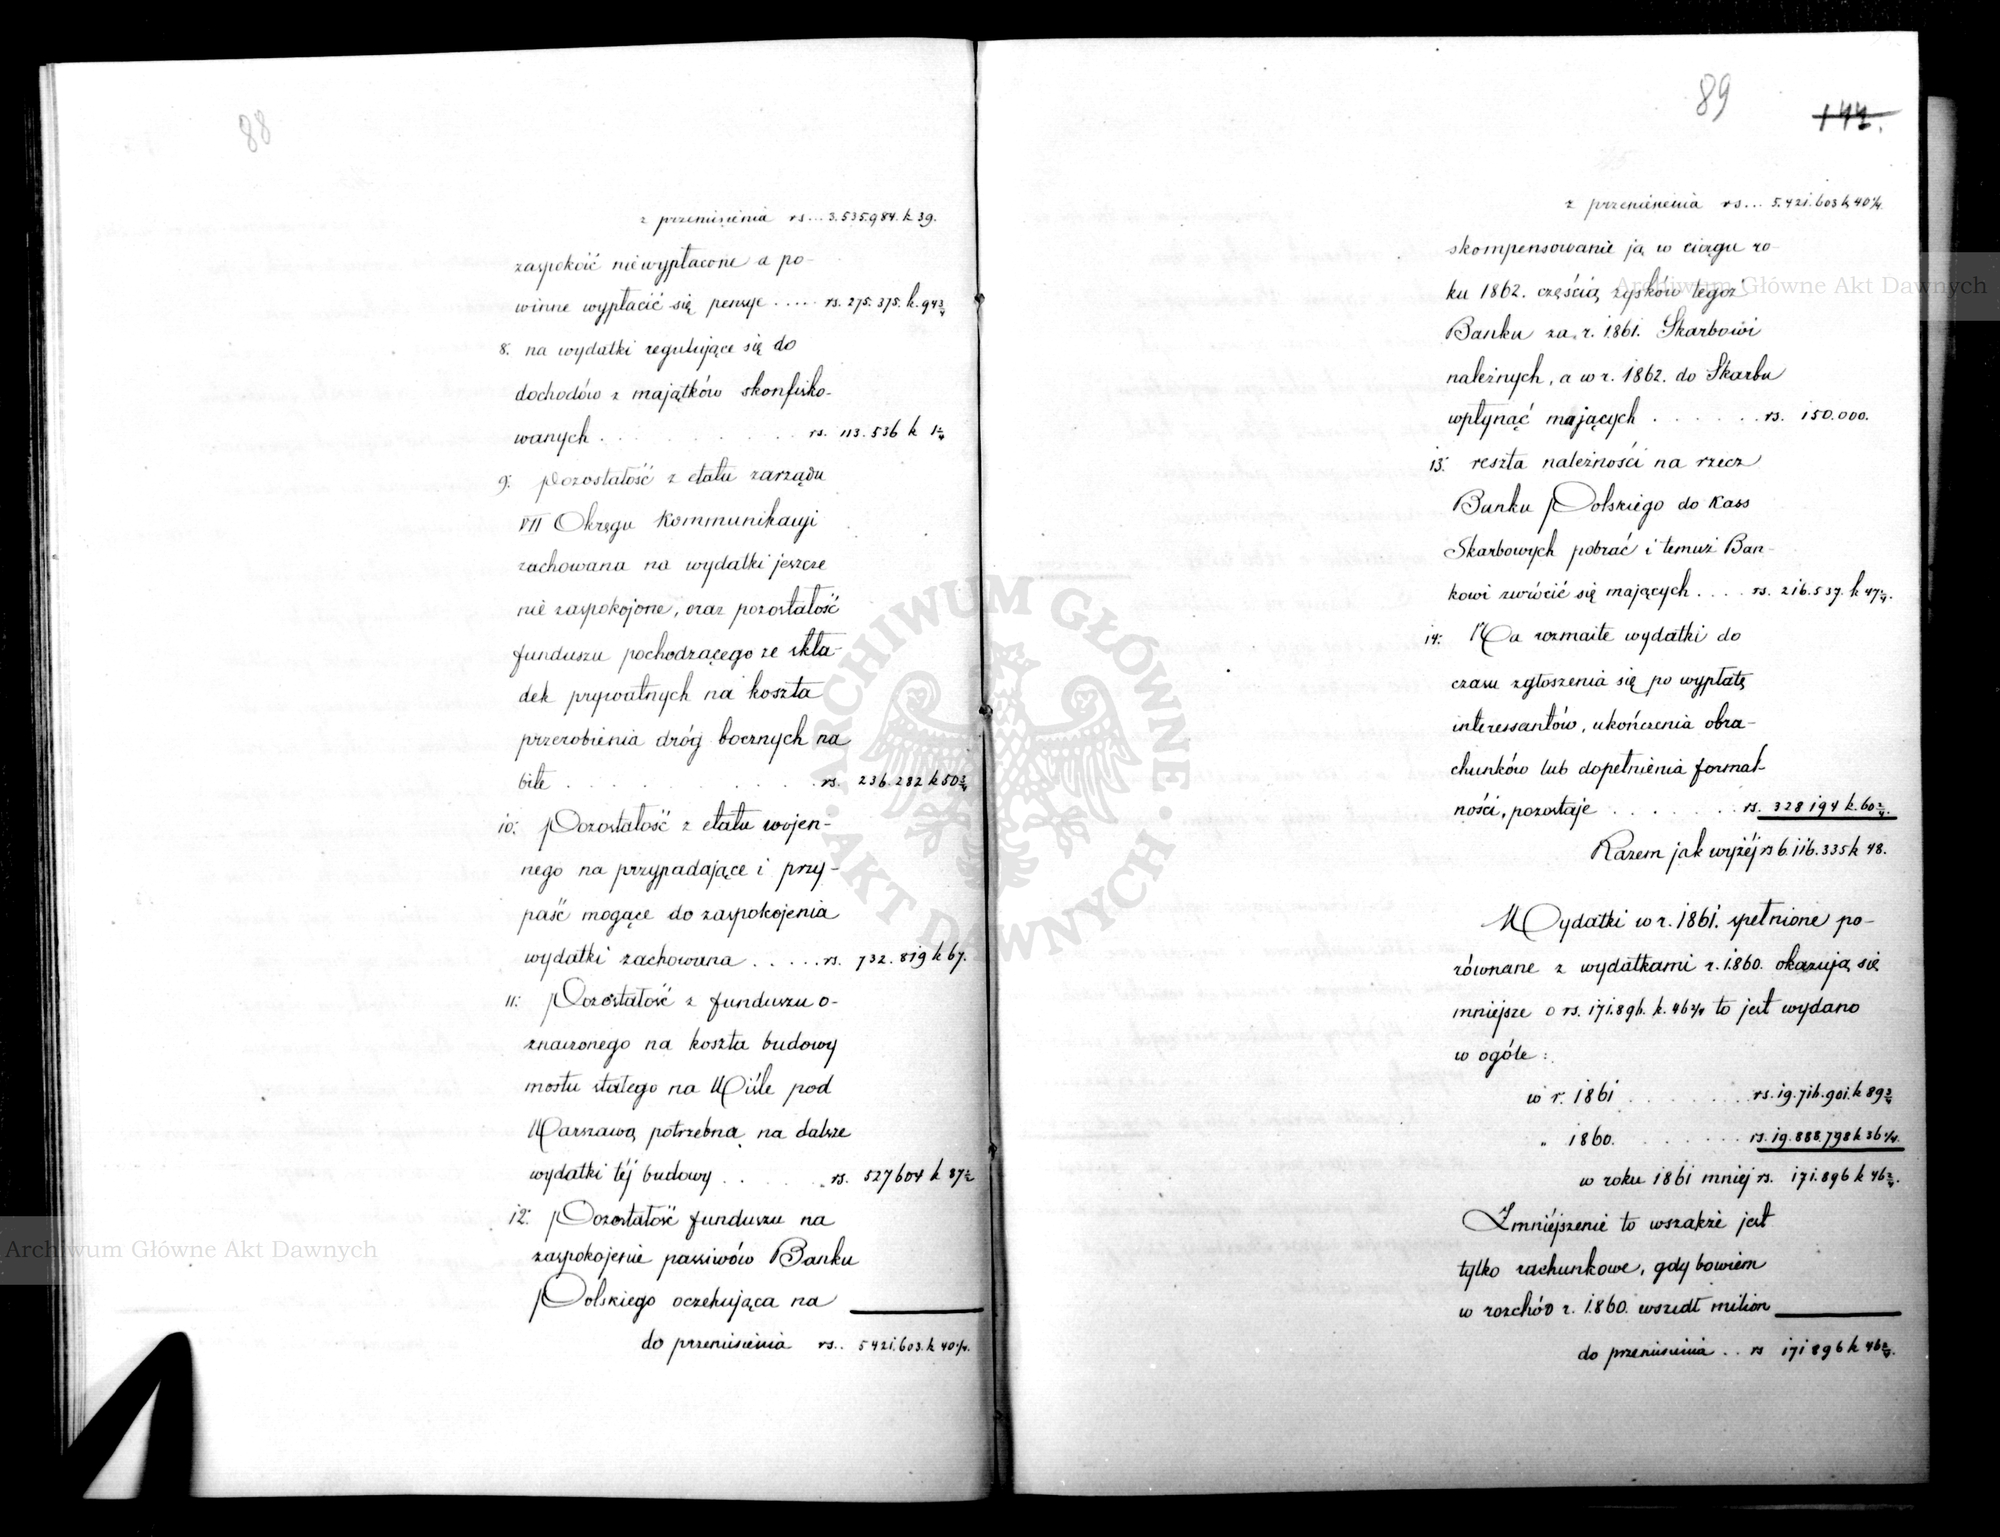 88
z przeniesienia rs... 3.535.984. k 39.
zaspokoić niewypłacone a po-
winne wypłacić się pensye ..... rs. 275.375. k. 94 3/4
8. na wydatki regulujące się do
dochodów z majątków skonfisko-
wanych . . . . . . . . . rs. 113.536 k 1 2/4
9. Pozostałość z etatu zarządu
VII Okręgu Kommunikacyi
zachowana na wydatki jeszcze
nie zaspokojone, oraz pozostałość
funduszu pochodzącego ze skła-
dek prywatnych na koszta
przerobienia dróg bocznych na
bite . . . . . . . . . . rs. 236.282 k 50 3/4
10. Pozostałość z etatu wojen-
nego na przypadające i przy-
paść mogące do zaspokojenia
wydatki zachowana ..... rs. 732.819 k 67.
11. Pozostałość z funduszu o-
znaczonego na koszta budowy
mostu stałego na Wiśle pod
Warszawą potrzebną na dalsze
wydatki téj budowy . . . . rs. 527604 k 87 2/4
12. Pozostałość funduszu na
zaspokojenie passiwów Banku
Polskiego oczekująca na
do przeniesienia rs.. 5421.603. k 40 1/4.
89
144.
z przeniesienia rs... 5.421.603 k 40 1/4.
skompensowanie ją w ciągu ro-
ku 1862. częścią zysków tegoż
Banku za r. 1861. Skarbowi
należnych, a w r. 1862. do Skarbu
wpłynąć mających . . . . . . rs. 150.000.
13. reszta należności na rzecz
Banku Polskiego do Kass
Skarbowych pobrać i temuż Ban-
kowi zwrócić się mających .... rs. 216.537. k 47 2/4.
14. Na rozmaite wydatki do
czasu zgłoszenia się po wypłatę
interessantów, ukończenia obra-
chunków lub dopełnienia formal-
ności, pozostaje . . . . . . . rs. 328194 k. 60 2/4.
Razem jak wyżéj rs 6.116.335 k 48.
Wydatki w r. 1861. spełnione po-
równane z wydatkami r. 1860. okazują się
mniejsze o rs. 171.896. k. 46 2/4 to jest wydano
w ogóle :
w r. 1861 . . . . . . . rs. 19.716.901. k 89 3/4
„ 1860. . . . . . . . rs. 19.888.798 k 36 1/4.
w roku 1861 mniej rs. 171.896 k 46 2/4.
Zmniéjszenie to wszakże jest
tylko rachunkowe, gdy bowiem
w rozchód r. 1860. wszedł milion
do przeniesienia .. rs 171896 k 46 2/4.
ARCHIWUM GŁÓWNE · AKT DAWNYCH ·
Archiwum Główne Akt Dawnych
Archiwum Główne Akt Dawnych